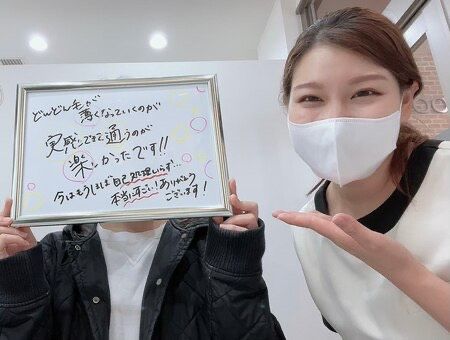 どんどん毛が薄くなっていくのが
実感できて通うのが
楽しかったです!!
今はもうほぼ自己処理いらず…
本当にすごい!ありがとう
ございます!